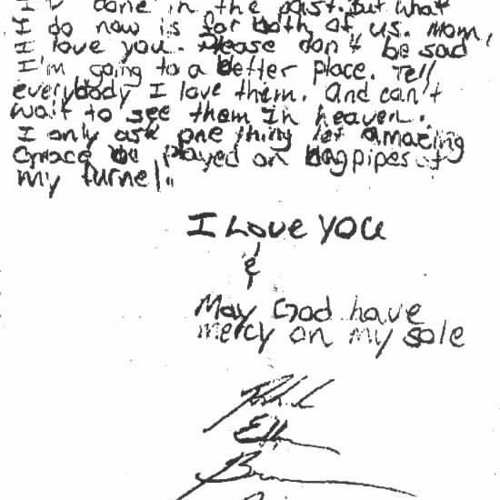 done in the past. But what
I do now is for both of us. Mom,
I love you. Please don't be sad
I'm going to a better place. Tell
everybody I love them. And can't
wait to see them in heaven.
I only ask one thing let amazing
Grace be played on bagpipes at
my furnel.
I Love you
&
May God have
mercy on my sole